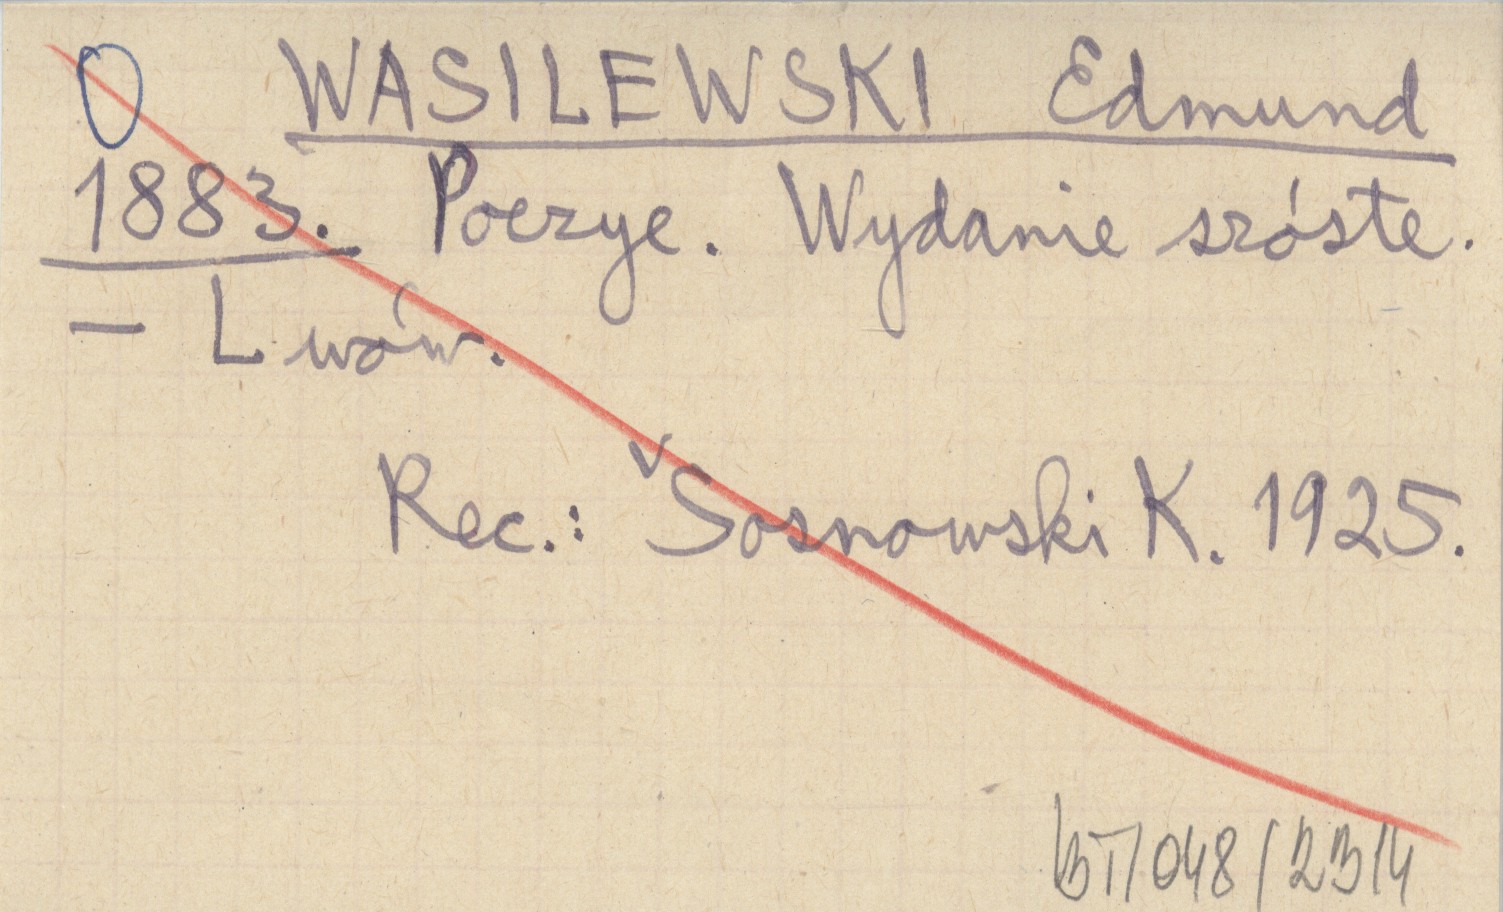 0 WASILEWSKI Edmund
1883. Poezye. Wydanie szóste.
— Lwów.
v
Rec.: Sosnowski K. 1925.
BT/048/23/4